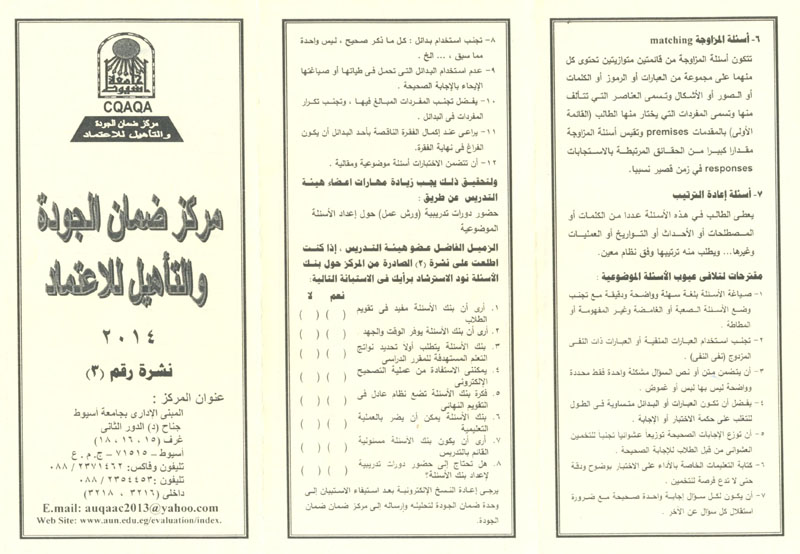 ٦- أسئلة المزاوجة matching
تتكون أسئلة المزاوجة من قائمتين متوازيتين تحتوى كل
منهما على مجموعة من العبارات أو الرموز أو الكلمات
أو الصور أو الأشكال وتسمى العناصر التى تتألف
منها وتسمى المفردات التى يختار منها الطالب (القائمة
الأولى) بالمقدمات premises وتقيس أسئلة المزاوجة
مقدارا كبيرا من الحقائق المرتبطة بالاستجابات
responses في زمن قصير نسبيا.
٧- أسئلة إعادة الترتيب
يعطى الطالب في هذه الأسئلة عددا من الكلمات أو
المصطلحات أو الأحداث أو التواريخ أو العمليات
وغيرها... ويطلب منه ترتيبها وفق نظام معين.
مقترحات لتلافى عيوب الأسئلة الموضوعية :
١- صياغة الأسئلة بلغة سهلة وواضحة ودقيقة مع تجنب
وضع الأسئلة الصعبة أو الغامضة وغير المفهومة أو
المطاطة .
٢- تجنب استخدام العبارات المنفية أو العبارات ذات النفى
المزدوج (نفى النفى) .
٣- أن يتضمن متن أو نص السؤال مشكلة واحدة فقط محددة
وواضحة ليس بها لبس أو غموض .
٤- يفضل أن تكون العبارات أو البدائل متساوية فى الطول
للتغلب على حكمة الاختبار أو الإجابة .
٥- أن توزع الإجابات الصحيحة توزيعاً عشوائياً تجنباً للتخمين
العشوائى من قبل الطلاب للإجابة الصحيحة .
٦- كتابة التعليمات الخاصة بالأداء على الاختبار بوضوح ودقة
حتى لا تدع فرصة للتخمين .
٧- أن يكون لكل سؤال إجابة واحدة صحيحة مع ضرورة
استقلال كل سؤال عن الآخر .
٨- تجنب استخدام بدائل : كل ما ذكر صحيح ، ليس واحدة
مما سبق ، ... الخ .
٩- عدم استخدام البدائل التى تحمل فى طياتها أو صياغتها
الإيحاء بالإجابة الصحيحة .
١٠- يفضل تجنب المفردات المبالغ فيها ، وتجنب تكرار
المفردات فى البدائل .
١١- يراعى عند إكمال الفقرة الناقصة بأحد البدائل أن يكون
الفراغ فى نهاية الفقرة .
١٢- أن تتضمن الاختبارات أسئلة موضوعية ومقالية .
ولتحقيق ذلك يجب زيادة مهارات اعضاء هيئة
التدريس عن طريق :
حضور دورات تدريبية (ورش عمل) حول إعداد الأسئلة
الموضوعية
الزميل الفاضل عضو هيئة التدريس . إذا كنت
اطلعت على نشرة (٢) الصادرة من المركز حول بنك
الأسئلة نود الاسترشاد برأيك فى الاستبانة التالية:
نعم لا
١. أرى أن بنك الأسئلة مفيد فى تقويم
الطلاب ( ) ( )
٢. أرى أن بنك الأسئلة يوفر الوقت والجهد ( ) ( )
٣. بنك الأسئلة يتطلب أولا تحديد نواتج
التعلم المستهدفة للمقرر الدراسى ( ) ( )
٤. يمكننى الاستفادة من عملية التصحيح
الإلكترونى ( ) ( )
٥. فكرة بنك الأسئلة تضع نظام عادل فى
التقويم النهائى ( ) ( )
٦. بنك الأسئلة يمكن أن يضر بالعملية
التعليمية ( ) ( )
٧. أرى أن يكون بنك الأسئلة مسئولية
القائم بالتدريس ( ) ( )
٨. هل تحتاج إلى حضور دورات تدريبية
لإعداد بنك الأسئلة؟ ( ) ( )
يرجى إعادة النسخ الإلكترونية بعد استيفاء الاستبيان إلى
وحدة ضمان الجودة لتحليله وإرساله إلى مركز ضمان ضمان
الجودة.
جامعة أسيوط
CQAQA
مركز ضمان الجودة
والتأهيل للاعتماد
مركز ضمان الجودة
والتأهيل للاعتماد
٢٠١٤
نشرة رقم (٣)
عنوان المركز :
المبنى الإدارى بجامعة أسيوط
جناح (د) الدور الثانى
غرف (١٥ ، ١٦ ، ١٨)
أسيوط – ٧١٥١٥ – ج.م.ع
تليفون وفاكس: ٢٣٧١٤٦٢ / ٠٨٨
تليفون: ٢٣٥٤٤٥٣ / ٠٨٨
داخلى (٣٢١٦ ، ٣٢١٨)
E.mail: auqaac2013@yahoo.com
Web Site: www.aun.edu.eg/evaluation/index.